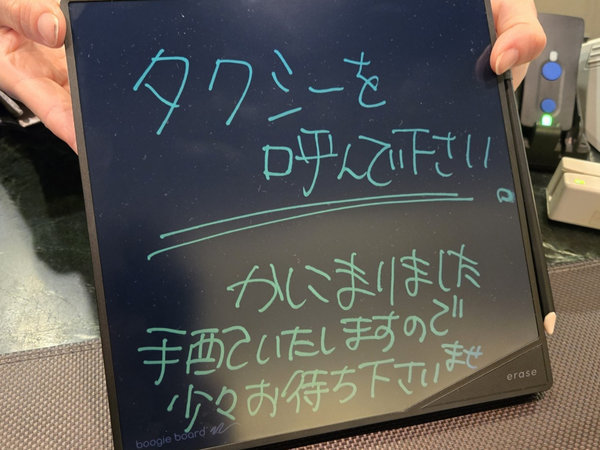 タクシーを
呼んで下さい。
かしこまりました
手配いたしますので
少々お待ち下さいませ
erase
boogie board